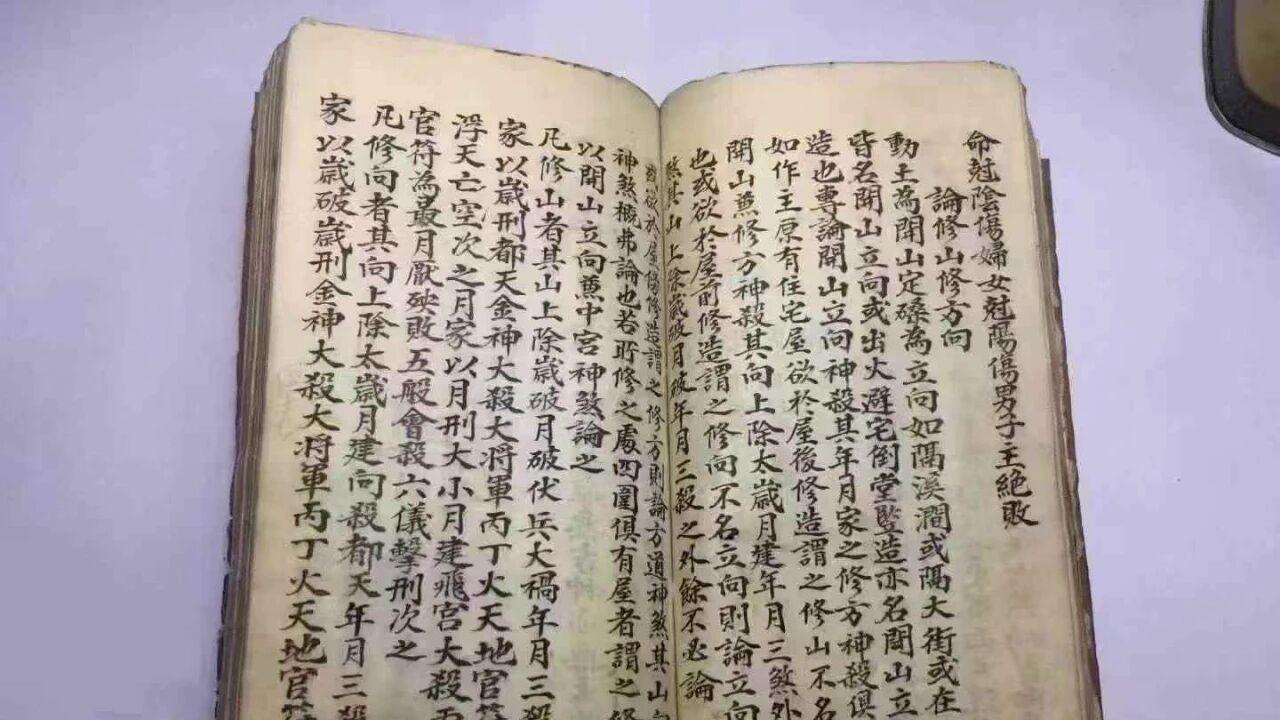 命尅陰傷婦女尅陽傷男子主絶敗
論修山修方向
動土為開山定磉為立向如隔溪澗或隔大街或在
皆名開山立向或出火避宅倒堂豎造亦名開山立
造也專論開山立向神殺其年月家之修方神殺俱
如作主原有住宅屋欲於屋後修造謂之修山不名
開山𠔥修方神殺其向上除太嵗月建年月三煞外
也或欲於屋前修造謂之修向不名立向則論立向
煞其山上除嵗破月破年月三殺之外餘不必論
欲於屋傍修造謂之修方則論方道神煞其山向
神煞概弗論也若所修之處四圍俱有屋者謂之修
以開山立向𠔥中宮神煞論之
凡修山者其山上除嵗破月破伏兵大禍年月三殺
家以嵗刑都天金神大殺大將軍丙丁火天地官符
浮天亡空次之月家以月刑大小月建飛宮大殺丙
官符為最月厭殃敗五般會殺六儀擊刑次之
凡修向者其向上除太嵗月建向殺都天年月三殺
家以嵗破嵗刑金神大殺大將軍丙丁火天地官符